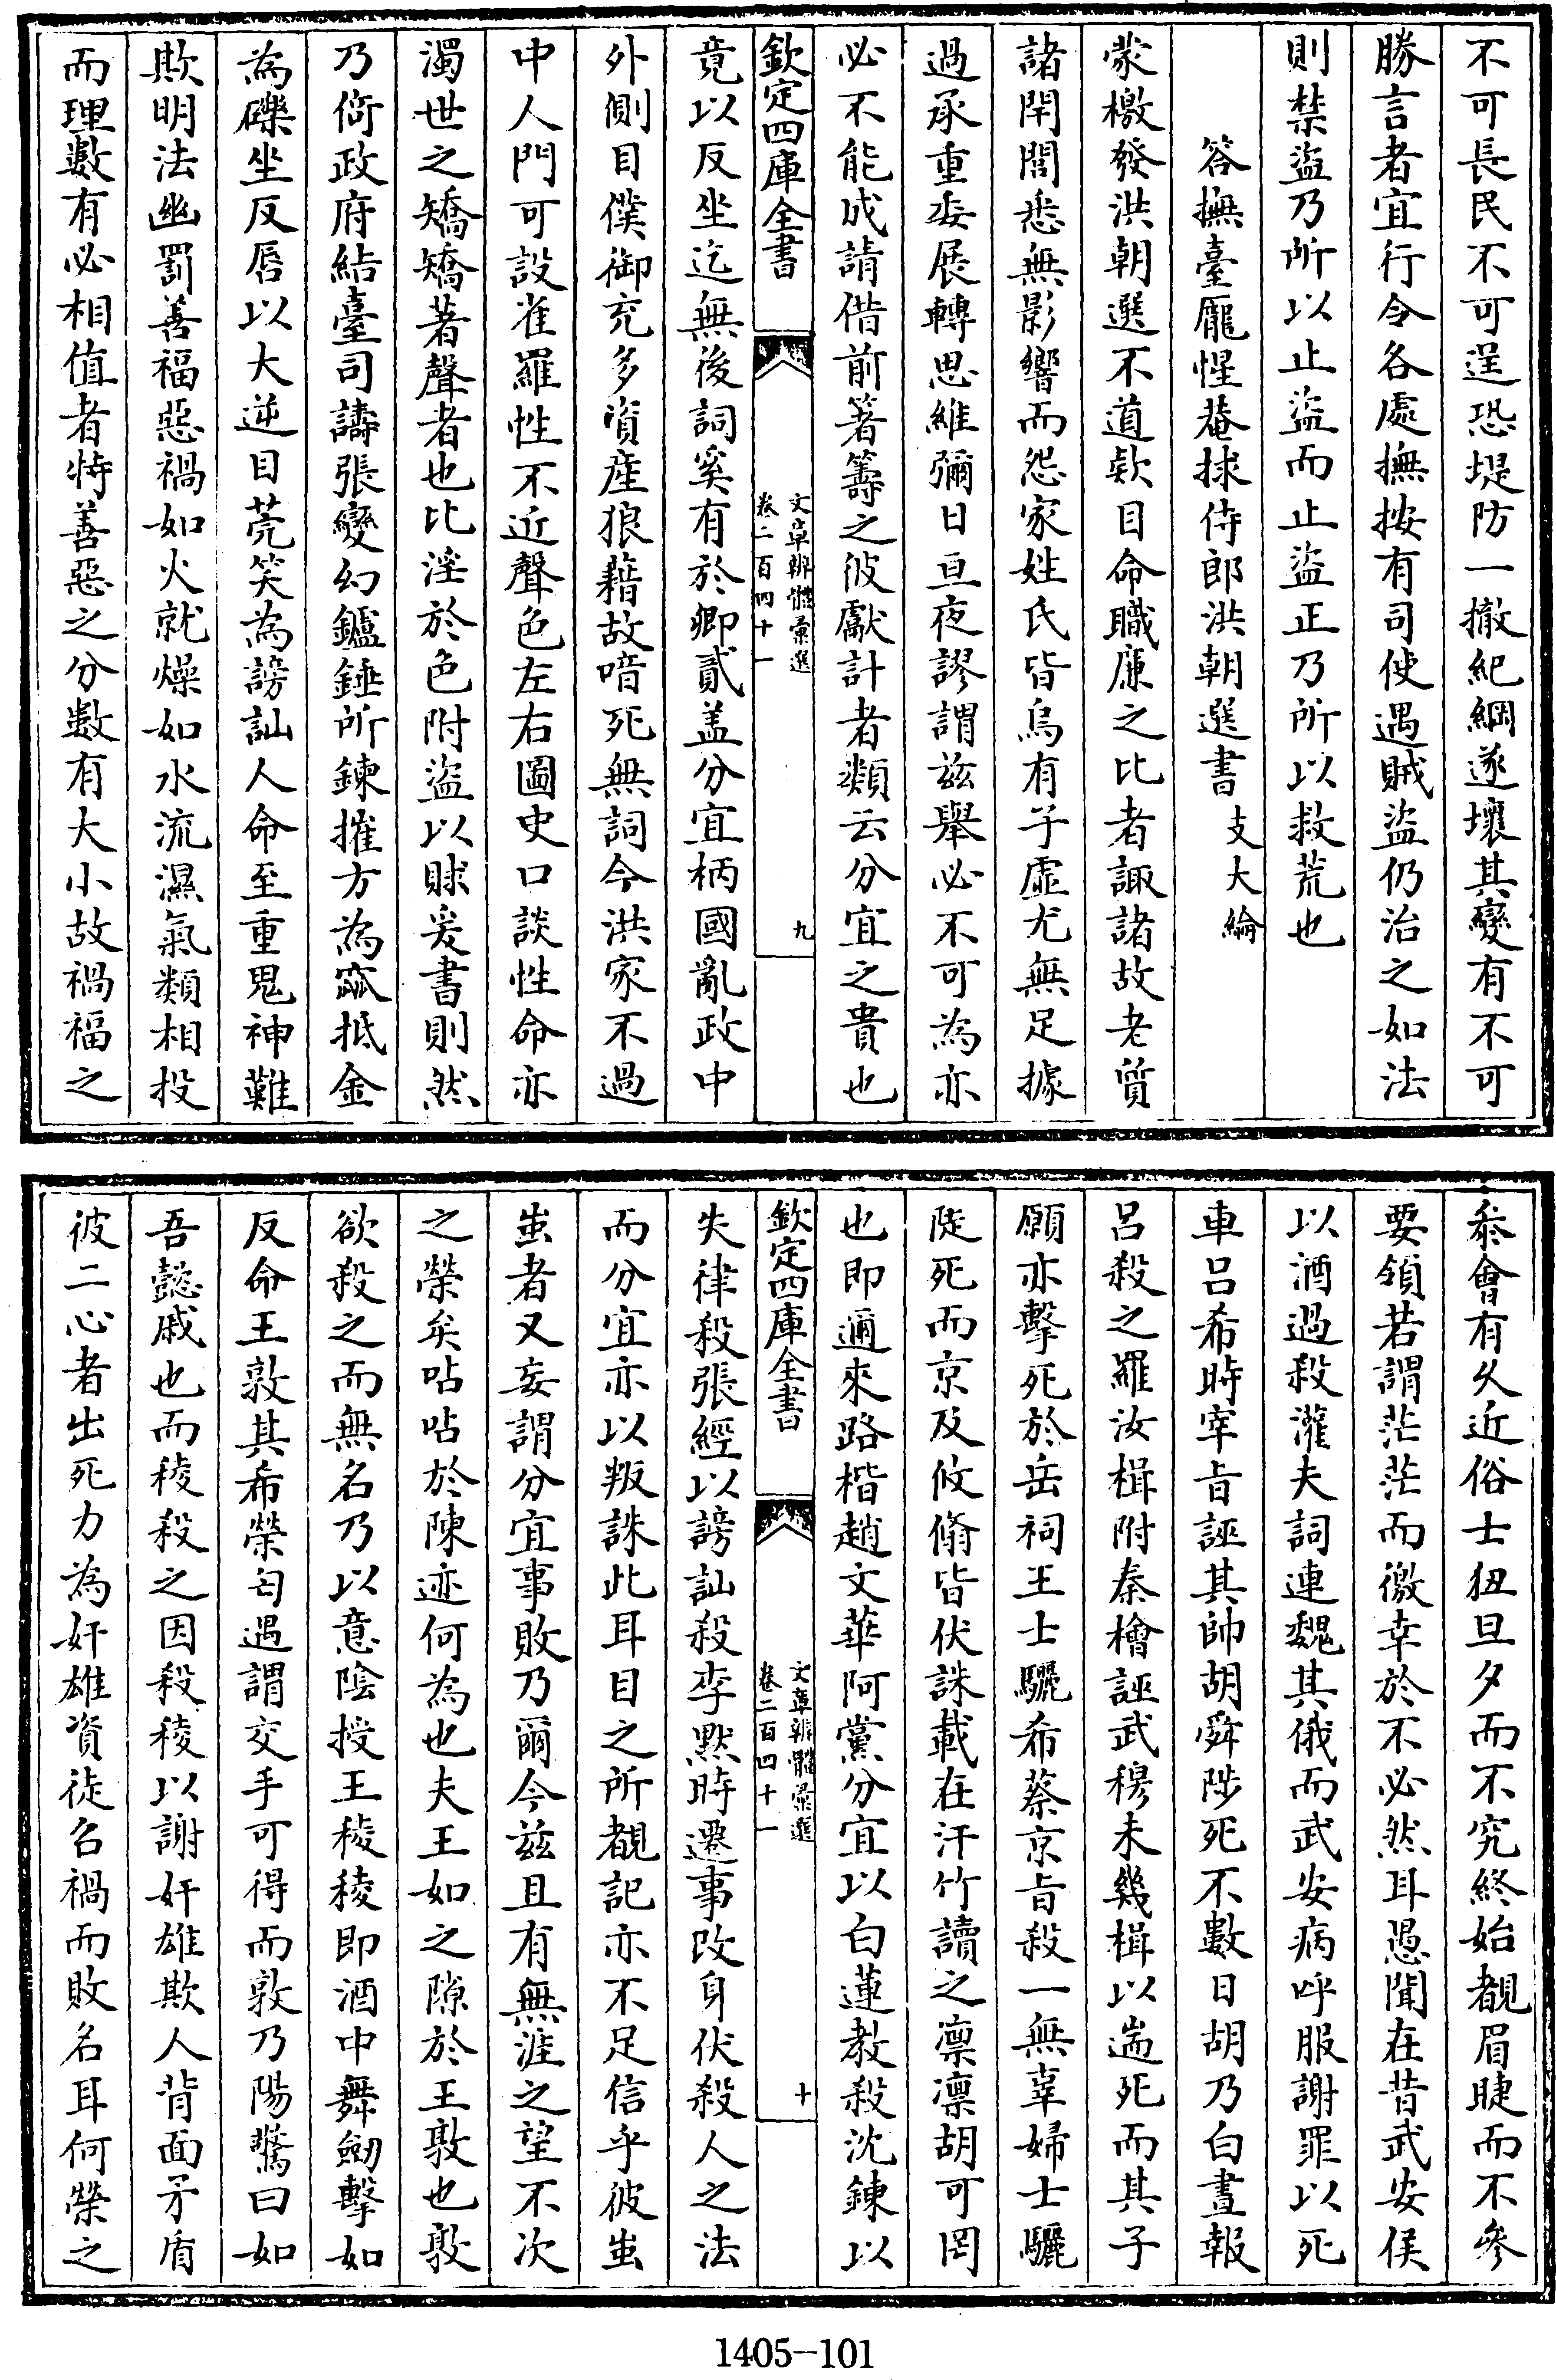 不可長民不可逞恐堤防一撤紀綱遂壞其變有不可
勝言者宜行令各處撫按有司使遇賊盜仍治之如法
則禁盜乃所以止盜而止盜正乃所以救荒也
答撫臺龎惺菴捄侍郎洪朝選書 支大綸
蒙檄發洪朝選不道欵目命職廉之比者諏諸故老質
諸閈閭悉無影響而怨家姓氏皆烏有子虛尤無足據
過承重委展轉思維彌日亘夜謬謂兹舉必不可為亦
必不能成請借前箸籌之彼獻計者類云分宜之貴也
欽定四庫全書
文章辨體彙選
卷二百四十一
九
竟以反坐迄無後詞奚有於卿貳盖分宜柄國亂政中
外側目僕御充多資産狼藉故喑死無詞今洪家不過
中人門可設雀羅性不近聲色左右圖史口談性命亦
濁世之矯矯著聲者也比淫於色附盜以賕爰書則然
乃倚政府結臺司譸張變幻鑪錘所鍊摧方為窳抵金
為礫坐反唇以大逆目莞笑為謗訕人命至重鬼神難
欺明法幽罰善福惡禍如火就燥如水流濕氣類相投
而理數有必相值者特善惡之分數有大小故禍福之
叅會有久近俗士狃旦夕而不究終始覩眉睫而不參
要領若謂茫茫而徼幸於不必然耳愚聞在昔武安侯
以酒過殺灌夫詞連魏其俄而武安病呼服謝罪以死
車吕希時宰旨誣其帥胡舜陟死不數日胡乃白晝報
吕殺之羅汝楫附秦檜誣武穆未幾楫以耑死而其子
願亦擊死於岳祠王士驪希蔡京旨殺一無辜婦士驪
陡死而京及攸翛皆伏誅載在汗竹讀之凛凛胡可罔
也即邇來路楷趙文華阿黨分宜以白蓮教殺沈鍊以
欽定四庫全書
文章辨體彙選
卷二百四十一
十
失律殺張經以謗訕殺李默時遷事改身伏殺人之法
而分宜亦以叛誅此耳目之所覩記亦不足信乎彼蚩
蚩者又妄謂分宜事敗乃爾今兹且有無涯之望不次
之榮矣呫呫於陳迹何為也夫王如之隙於王敦也敦
欲殺之而無名乃以意陰授王稜稜即酒中舞劒擊如
反命王敦其希榮匄遇謂交手可得而敦乃陽驚曰如
吾懿戚也而稜殺之因殺稜以謝奸雄欺人背面矛盾
彼二心者出死力為奸雄資徒名禍而敗名耳何榮之
1405-101